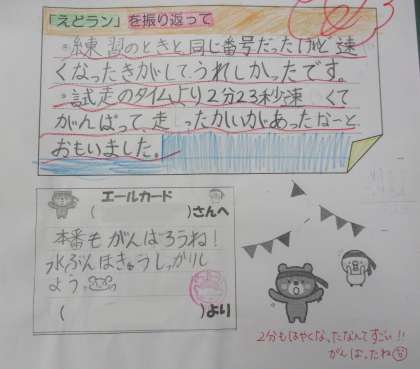 「えどラン」を振り返って
・練習のときと同じ番号だったけど速
くなったきがして、うれしかったです。
・試走のタイムより2分23秒速くて
がんばって、走ったかいがあったなーと
おもいました。
エールカード
( )さんへ
本番もがんばろうね!
水ぶんほきゅうしっかりし
よう。
( )より
2分もはやくなったなんてすごい!!
がんばったね